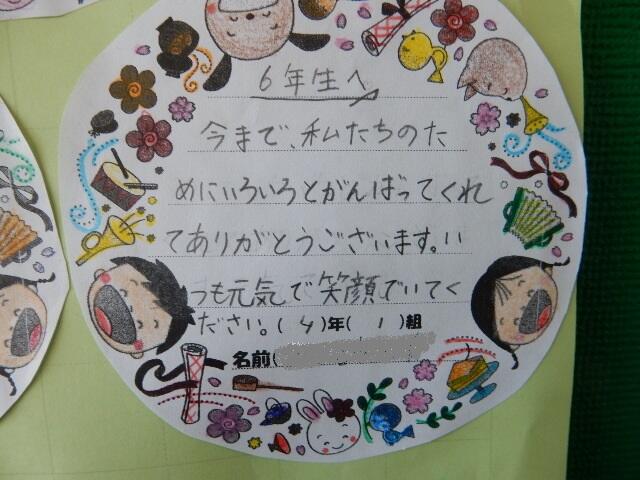 6年生へ
今まで、私たちのた
めにいろいろとがんばってくれ
てありがとうございます。い
つも元気で笑顔でいてく
ださい。(4)年(1)組
名前(